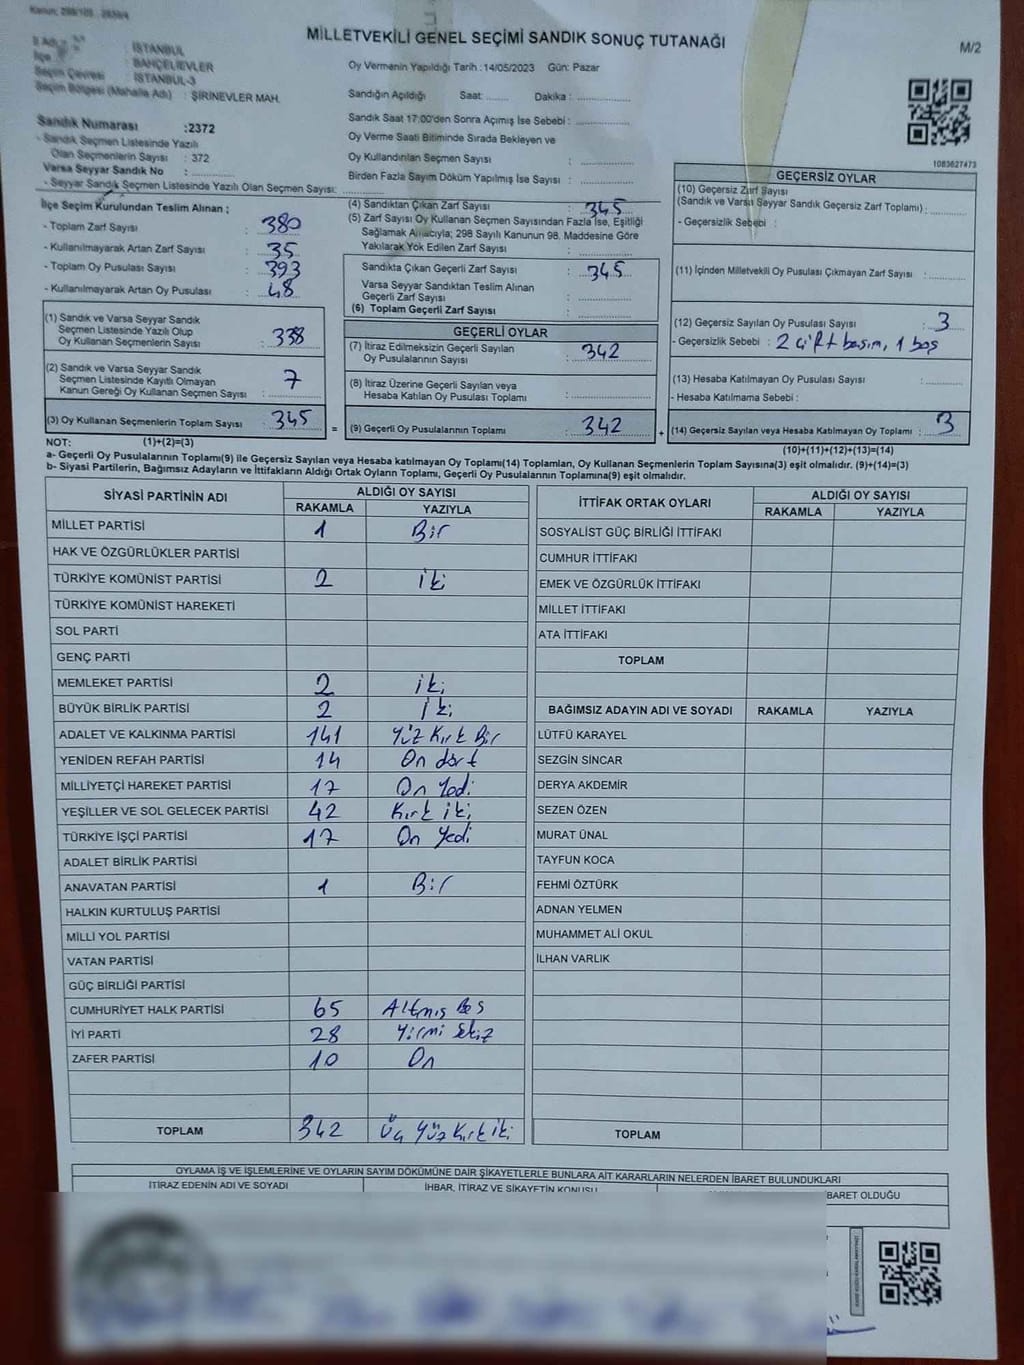 MİLLETVEKİLİ GENEL SEÇİMİ SANDIK SONUÇ TUTANAĞI
M/2
İSTANBUL
BAHÇELİEVLER
Seçim Çevresi : İSTANBUL-3
Seçim Bölgesi (Mahalle Adı) : ŞİRİNEVLER MAH.
Sandık Numarası :2372
- Sandık Seçmen Listesinde Yazılı
Olan Seçmenlerin Sayısı : 372
Varsa Seyyar Sandık No :
- Seyyar Sandık Seçmen Listesinde Yazılı Olan Seçmen Sayısı:
Oy Vermenin Yapıldığı Tarih :14/05/2023 Gün: Pazar
Sandığın Açıldığı Saat: Dakika :
Sandık Saat 17:00'den Sonra Açımış İse Sebebi :
Oy Verme Saati Bitiminde Sırada Bekleyen ve
Oy Kullandırılan Seçmen Sayısı :
Birden Fazla Sayım Döküm Yapılmış İse Sayısı :
1083627473
İlçe Seçim Kurulundan Teslim Alınan ;
- Toplam Zarf Sayısı : 380
- Kullanılmayarak Artan Zarf Sayısı : 35
- Toplam Oy Pusulası Sayısı : 393
- Kullanılmayarak Artan Oy Pusulası : 48
(1) Sandık ve Varsa Seyyar Sandık
Seçmen Listesinde Yazılı Olup
Oy Kullanan Seçmenlerin Sayısı : 338
(2) Sandık ve Varsa Seyyar Sandık
Seçmen Listesinde Kayıtlı Olmayan
Kanun Gereği Oy Kullanan Seçmen Sayısı : 7
(3) Oy Kullanan Seçmenlerin Toplam Sayısı : 345
(4) Sandıktan Çıkan Zarf Sayısı : 345
(5) Zarf Sayısı Oy Kullanan Seçmen Sayısından Fazla İse, Eşitliği
Sağlamak Amacıyla; 298 Sayılı Kanunun 98. Maddesine Göre
Yakılarak Yok Edilen Zarf Sayısı :
Sandıkta Çıkan Geçerli Zarf Sayısı : 345
Varsa Seyyar Sandıktan Teslim Alınan
Geçerli Zarf Sayısı :
(6) Toplam Geçerli Zarf Sayısı :
GEÇERLİ OYLAR
(7) İtiraz Edilmeksizin Geçerli Sayılan
Oy Pusulalarının Sayısı : 342
(8) İtiraz Üzerine Geçerli Sayılan veya
Hesaba Katılan Oy Pusulası Toplamı :
= (9) Geçerli Oy Pusulalarının Toplamı : 342
GEÇERSİZ OYLAR
(10) Geçersiz Zarf Sayısı
(Sandık ve Varsa Seyyar Sandık Geçersiz Zarf Toplamı) :
- Geçersizlik Sebebi :
(11) İçinden Milletvekili Oy Pusulası Çıkmayan Zarf Sayısı :
(12) Geçersiz Sayılan Oy Pusulası Sayısı : 3
- Geçersizlik Sebebi : 2 çift basım, 1 boş
(13) Hesaba Katılmayan Oy Pusulası Sayısı :
- Hesaba Katılmama Sebebi :
+ (14) Geçersiz Sayılan veya Hesaba Katılmayan Oy Toplamı : 3
NOT: (1)+(2)=(3)
(10)+(11)+(12)+(13)=(14)
a- Geçerli Oy Pusulalarının Toplamı(9) ile Geçersiz Sayılan veya Hesaba katılmayan Oy Toplamı(14) Toplamları, Oy Kullanan Seçmenlerin Toplam Sayısına(3) eşit olmalıdır. (9)+(14)=(3)
b- Siyasi Partilerin, Bağımsız Adayların ve İttifakların Aldığı Ortak Oyların Toplamı, Geçerli Oy Pusulalarının Toplamına(9) eşit olmalıdır.
SİYASİ PARTİNİN ADI ALDIĞI OY SAYISI
RAKAMLA YAZIYLA
MİLLET PARTİSİ 1 Bir
HAK VE ÖZGÜRLÜKLER PARTİSİ
TÜRKİYE KOMÜNİST PARTİSİ 2 iki
TÜRKİYE KOMÜNİST HAREKETİ
SOL PARTİ
GENÇ PARTİ
MEMLEKET PARTİSİ 2 iki
BÜYÜK BİRLİK PARTİSİ 2 iki
ADALET VE KALKINMA PARTİSİ 141 Yüz Kırk Bir
YENİDEN REFAH PARTİSİ 14 On dört
MİLLİYETÇİ HAREKET PARTİSİ 17 On Yedi
YEŞİLLER VE SOL GELECEK PARTİSİ 42 Kırk iki
TÜRKİYE İŞÇİ PARTİSİ 17 On Yedi
ADALET BİRLİK PARTİSİ
ANAVATAN PARTİSİ 1 Bir
HALKIN KURTULUŞ PARTİSİ
MİLLİ YOL PARTİSİ
VATAN PARTİSİ
GÜÇ BİRLİĞİ PARTİSİ
CUMHURİYET HALK PARTİSİ 65 Altmış Beş
İYİ PARTİ 28 Yirmi Sekiz
ZAFER PARTİSİ 10 On
TOPLAM 342 Üç Yüz Kırk iki
İTTİFAK ORTAK OYLARI ALDIĞI OY SAYISI
RAKAMLA YAZIYLA
SOSYALİST GÜÇ BİRLİĞİ İTTİFAKI
CUMHUR İTTİFAKI
EMEK VE ÖZGÜRLÜK İTTİFAKI
MİLLET İTTİFAKI
ATA İTTİFAKI
TOPLAM
BAĞIMSIZ ADAYIN ADI VE SOYADI RAKAMLA YAZIYLA
LÜTFÜ KARAYEL
SEZGİN SİNCAR
DERYA AKDEMİR
SEZEN ÖZEN
MURAT ÜNAL
TAYFUN KOCA
FEHMİ ÖZTÜRK
ADNAN YELMEN
MUHAMMET ALİ OKUL
İLHAN VARLIK
TOPLAM
OYLAMA İŞ VE İŞLEMLERİNE VE OYLARIN SAYIM DÖKÜMÜNE DAİR ŞİKAYETLERLE BUNLARA AİT KARARLARIN NELERDEN İBARET BULUNDUKLARI
İTİRAZ EDENİN ADI VE SOYADI İHBAR, İTİRAZ VE ŞİKAYETİN KONUSU BARET OLDUĞU